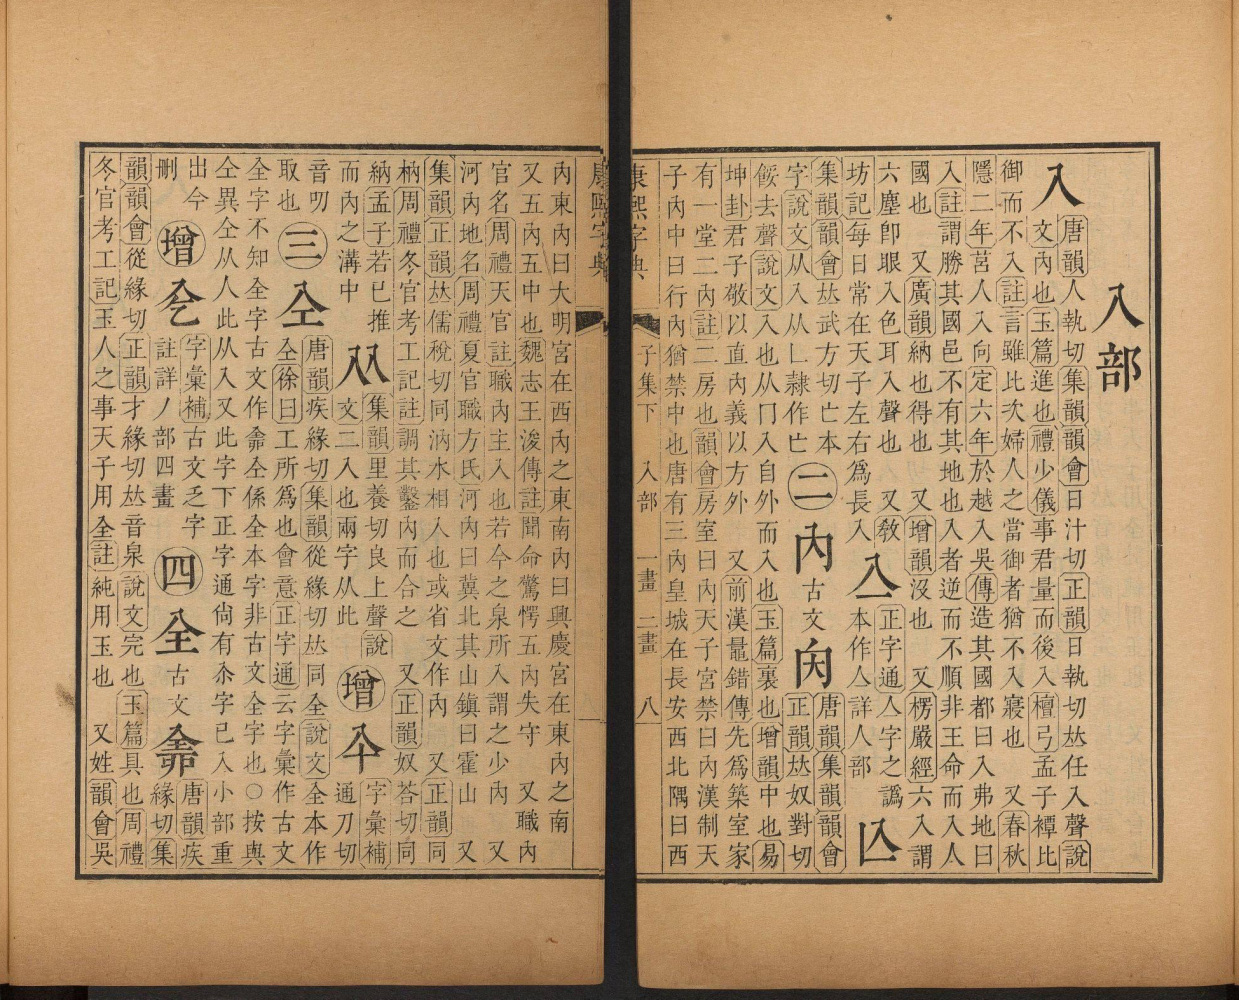 入部
入唐韻人執切集韻韻會日汁切正韻日執切𠀤任入聲說
文內也玉篇進也禮少儀事君量而後入檀弓孟子禫比
御而不入註言雖比次婦人之當御者猶不入寢也 又春秋
隱二年莒人入向定六年於越入吳傳造其國都曰入弗地曰
入註謂勝其國邑不有其地也入者逆而不順非王命而入人
國也 又廣韻納也得也 又增韻沒也 又楞嚴經六入謂
六塵卽眼入色耳入聲也 又敎亼正字通人字之譌
坊記每日常在天子左右爲長入 本作亼詳人部 亾
集韻韻會𠀤武方切亡本
字說文从入从乚隸作亡 二 內古文㕯唐韻集韻韻會
正韻𠀤奴對切
餒去聲說文入也从冂入自外而入也玉篇裏也增韻中也易
坤卦君子敬以直內義以方外 又前漢鼂錯傳先爲築室家
有一堂二內註二房也韻會房室曰內天子宮禁曰內漢制天
子內中曰行內猶禁中也唐有三內皇城在長安西北隅曰西
子集下 入部 一畫 二畫 八
康熙字典
內東內曰大明宮在西內之東南內曰興慶宮在東內之南
又五內五中也魏志王浚傳註聞命驚愕五內失守 又職內
官名周禮天官註職內主入也若今之泉所入謂之少內 又
河內地名周禮夏官職方氏河內曰冀北其山鎭曰霍山 又
集韻正韻𠀤儒稅切同汭水相入也或省文作內 又正韻同
枘周禮冬官考工記註調其鑿內而合之 又正韻奴荅切同
納孟子若已推
而內之溝中 㒳集韻里養切良上聲說
文二入也兩字从此 增 字彙補
通刀切
音叨
取也 三 仝唐韻疾緣切集韻從緣切𠀤同全說文全本作
仝徐曰工所爲也會意正字通云字彙作古文
全字不知全字古文作㒰全係全本字非古文全字也○按與
仝異仝从人此从入又此字下正字通尙有氽字已入小部重
出今
删 增 字彙補古文乏字
註詳丿部四畫 四 全古文㒰唐韻疾
緣切集
韻韻會從緣切正韻才緣切𠀤音泉說文完也玉篇具也周禮
冬官考工記玉人之事天子用全註純用玉也 又姓韻會吳